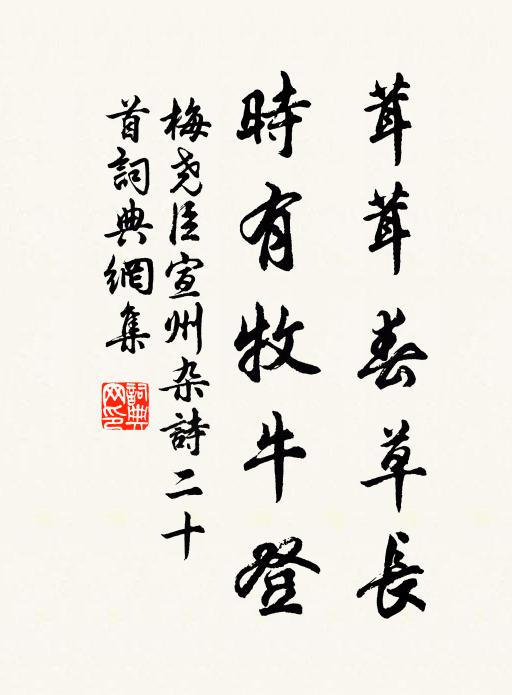 茸茸春草長
時有牧牛登
梅尧臣宣州杂詩二十
首詞典網集
詞典
网印